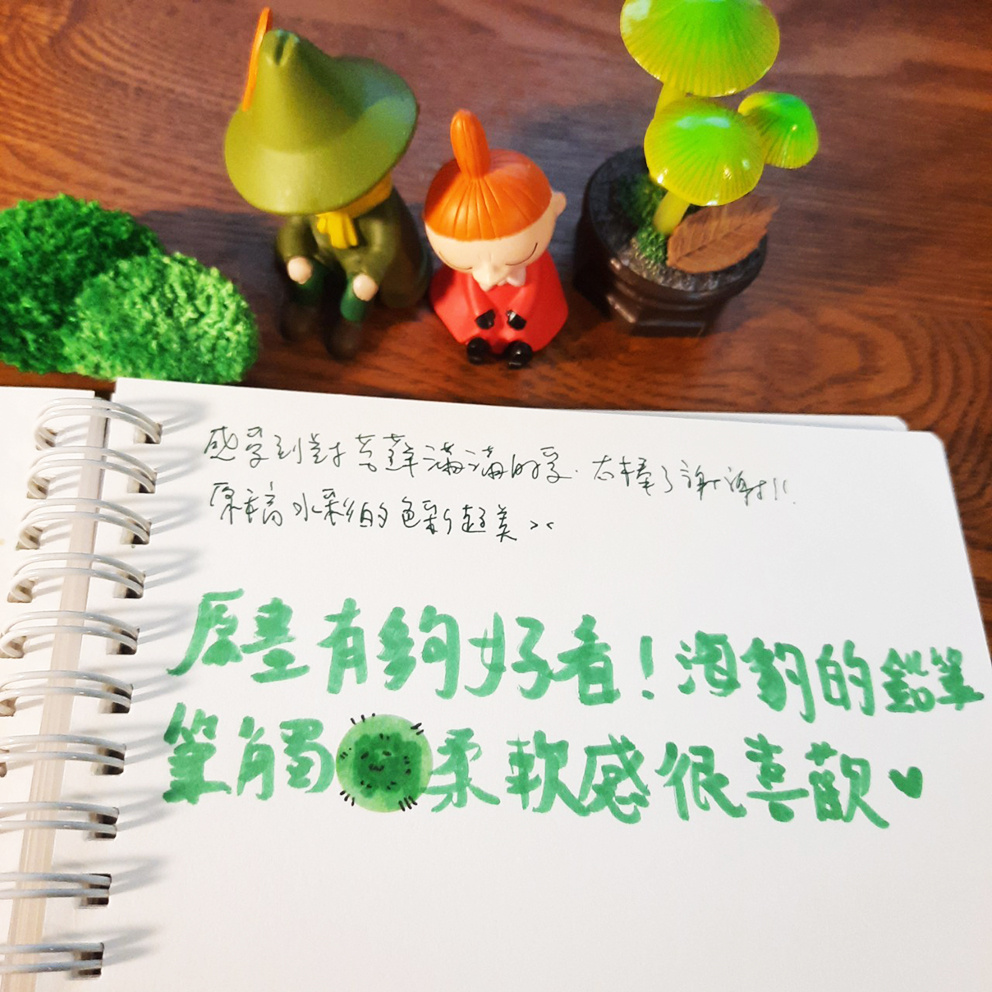 感受到對苔蘚滿滿的愛.太棒了謝謝!!
原稿水彩的色彩超美 ><
原畫有夠好看!海豹的鉛筆
筆觸柔軟感很喜歡♥